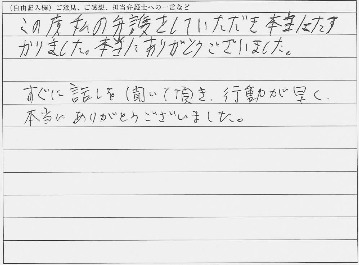 （自由記入欄）ご意見、ご感想、担当弁護士への一言など
この度私の弁護をしていただき本当にたす
かりました。本当にありがとうございました。
すぐに話しを聞いて頂き、行動が早く、
本当にありがとうございました。